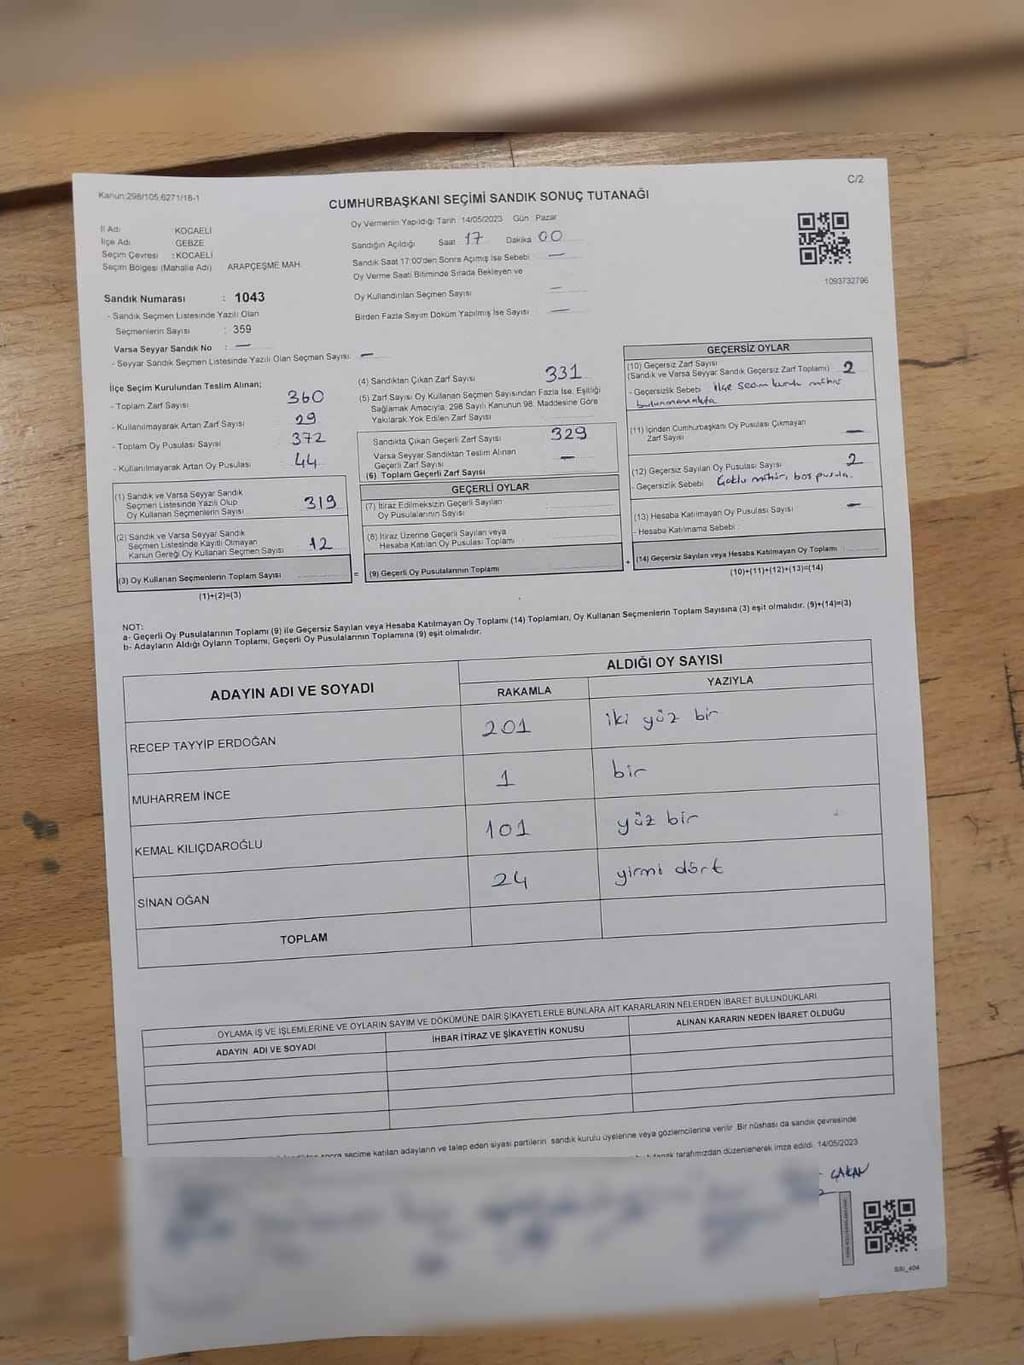 Kanun:298/105,6271/18-1
C/2
CUMHURBAŞKANI SEÇİMİ SANDIK SONUÇ TUTANAĞI
İl Adı KOCAELİ
İlçe Adı GEBZE
Seçim Çevresi : KOCAELİ
Seçim Bölgesi (Mahalle Adı) ARAPÇEŞME MAH.
Sandık Numarası : 1043
- Sandık Seçmen Listesinde Yazılı Olan
Seçmenlerin Sayısı : 359
Varsa Seyyar Sandık No : —
- Seyyar Sandık Seçmen Listesinde Yazılı Olan Seçmen Sayısı: —
Oy Vermenin Yapıldığı Tarih 14/05/2023 Gün Pazar
Sandığın Açıldığı Saat 17 Dakika 00
Sandık Saat 17:00'den Sonra Açımış İse Sebebi —
Oy Verme Saati Bitiminde Sırada Bekleyen ve
Oy Kullandırılan Seçmen Sayısı —
Birden Fazla Sayım Döküm Yapılmış İse Sayısı —
1093732796
İlçe Seçim Kurulundan Teslim Alınan;
- Toplam Zarf Sayısı 360
- Kullanılmayarak Artan Zarf Sayısı 29
- Toplam Oy Pusulası Sayısı 372
- Kullanılmayarak Artan Oy Pusulası 44
(1) Sandık ve Varsa Seyyar Sandık
Seçmen Listesinde Yazılı Olup
Oy Kullanan Seçmenlerin Sayısı 319
(2) Sandık ve Varsa Seyyar Sandık
Seçmen Listesinde Kayıtlı Olmayan
Kanun Gereği Oy Kullanan Seçmen Sayısı 12
(3) Oy Kullanan Seçmenlerin Toplam Sayısı
(1)+(2)=(3)
(4) Sandıktan Çıkan Zarf Sayısı 331
(5) Zarf Sayısı Oy Kullanan Seçmen Sayısından Fazla İse, Eşitliği
Sağlamak Amacıyla; 298 Sayılı Kanunun 98. Maddesine Göre
Yakılarak Yok Edilen Zarf Sayısı
Sandıkta Çıkan Geçerli Zarf Sayısı 329
Varsa Seyyar Sandıktan Teslim Alınan
Geçerli Zarf Sayısı —
(6) Toplam Geçerli Zarf Sayısı
GEÇERLİ OYLAR
(7) İtiraz Edilmeksizin Geçerli Sayılan
Oy Pusulalarının Sayısı
(8) İtiraz Üzerine Geçerli Sayılan veya
Hesaba Katılan Oy Pusulası Toplamı
= (9) Geçerli Oy Pusulalarının Toplamı
GEÇERSİZ OYLAR
(10) Geçersiz Zarf Sayısı
(Sandık ve Varsa Seyyar Sandık Geçersiz Zarf Toplamı) 2
- Geçersizlik Sebebi ilçe seçim kurulu mührü
bulunmamakta
(11) İçinden Cumhurbaşkanı Oy Pusulası Çıkmayan
Zarf Sayısı —
(12) Geçersiz Sayılan Oy Pusulası Sayısı 2
- Geçersizlik Sebebi Çoklu mühür, boş pusula.
(13) Hesaba Katılmayan Oy Pusulası Sayısı —
- Hesaba Katılmama Sebebi :
+ (14) Geçersiz Sayılan veya Hesaba Katılmayan Oy Toplamı
(10)+(11)+(12)+(13)=(14)
NOT:
a- Geçerli Oy Pusulalarının Toplamı (9) ile Geçersiz Sayılan veya Hesaba Katılmayan Oy Toplamı (14) Toplamları, Oy Kullanan Seçmenlerin Toplam Sayısına (3) eşit olmalıdır. (9)+(14)=(3)
b- Adayların Aldığı Oyların Toplamı, Geçerli Oy Pusulalarının Toplamına (9) eşit olmalıdır.
ADAYIN ADI VE SOYADI
ALDIĞI OY SAYISI
RAKAMLA YAZIYLA
RECEP TAYYİP ERDOĞAN 201 iki yüz bir
MUHARREM İNCE 1 bir
KEMAL KILIÇDAROĞLU 101 yüz bir
SİNAN OĞAN 24 yirmi dört
TOPLAM
OYLAMA İŞ VE İŞLEMLERİNE VE OYLARIN SAYIM VE DÖKÜMÜNE DAİR ŞİKAYETLERLE BUNLARA AİT KARARLARIN NELERDEN İBARET BULUNDUKLARI
ADAYIN ADI VE SOYADI İHBAR İTİRAZ VE ŞİKAYETİN KONUSU ALINAN KARARIN NEDEN İBARET OLDUĞU
sonra seçime katılan adayların ve talep eden siyasi partilerin sandık kurulu üyelerine veya gözlemcilerine verilir. Bir nüshası da sandık çevresinde
tarafımızdan düzenlenerek imza edildi. 14/05/2023